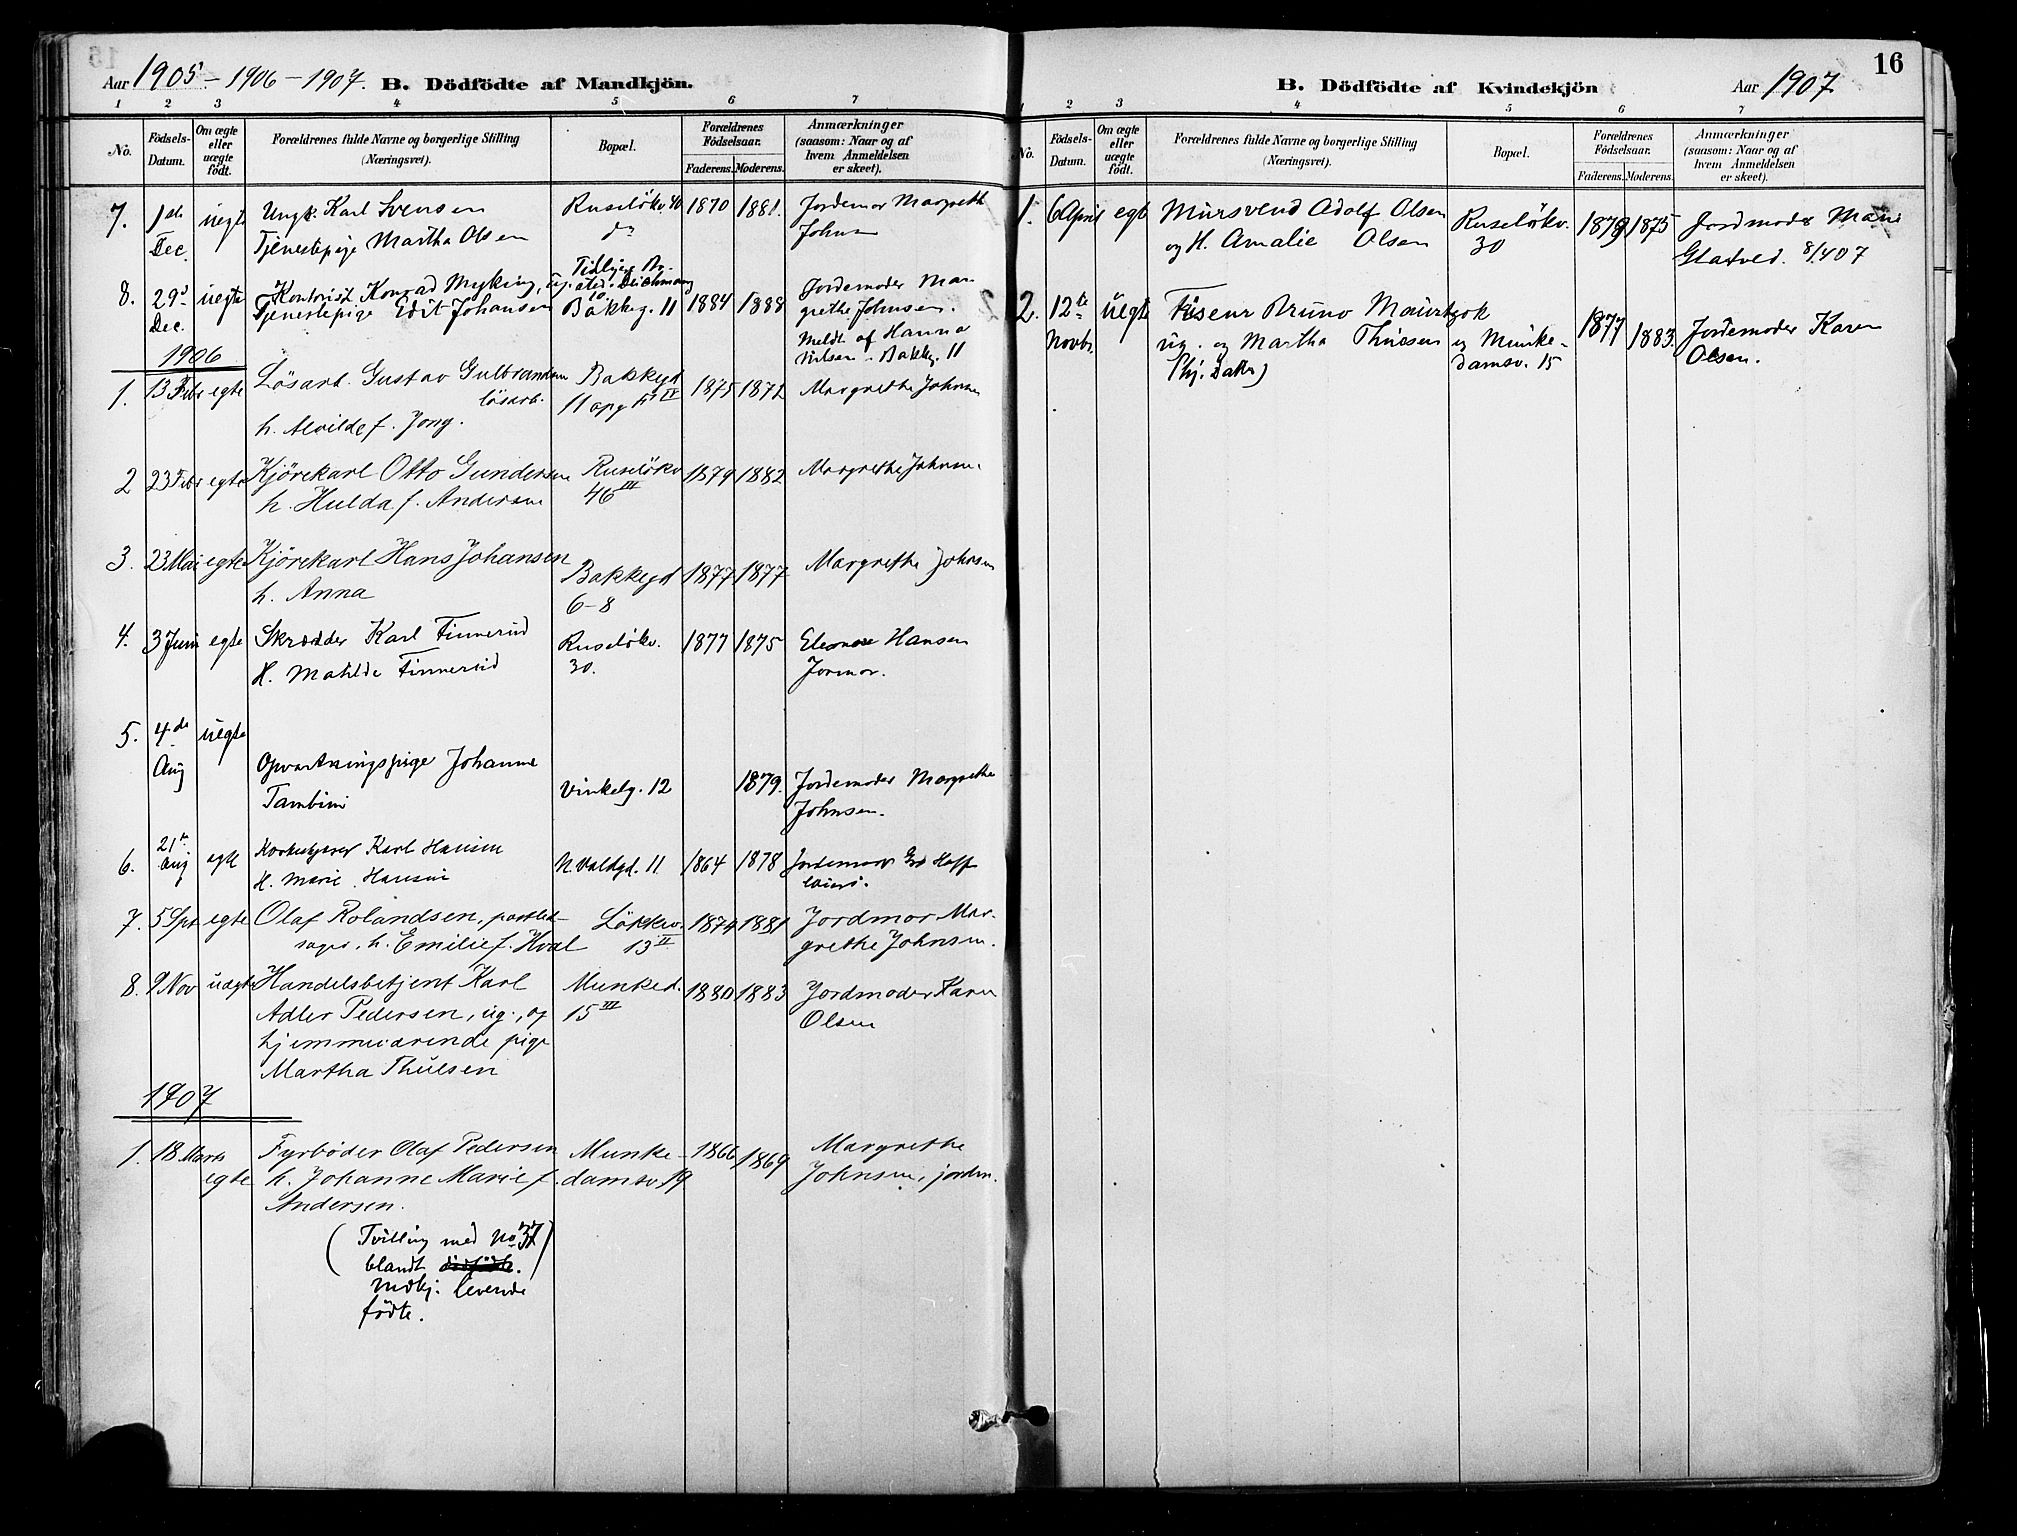 Aar 1905 - 1906 - 1907. B. Dödfödte af Mandkjön.
1 2 3 4 5 6 7
No.
Födsels-
Datum.
Om ægte
eller
uægte
födt.
Forældrenes fulde Navne og borgerlige Stilling
(Næringsvei).
Bopæl.
Forældrenes
Födselsaar.
Faderens. Moderens.
Anmærkninger
(saasom: Naar og af
hvem Anmeldelsen
er skeet).
7. 1ste Dec. uegte
Ungk. Karl Svensen
Tjenestepige Martha Olsen
Ruselökv. 40
do
1870 1881.
Jordemor Margreth
Johnsen
8. 29de Dec. uegte
Kontorist Konrad Myking, ug.
Tjenestepige Edit Johansen
Bakkeg. 11
1884 1888
Jordemoder Mar
grethe Johnsen.
Meldt af Hanna
Nilsen. Bakkg. 11
1906
1. 13 Febr egte
Lösarb. Gustav Gulbrandsen
lösarb.
h. Alvilde f. Jong.
Bakkegd
11 opg
1875 1872
Margrethe Johnsen
2 23 Febr egte
Kjörekarl Otto Gundersen
h. Hulda f. Andersen
Ruselökv
46 III
1879 1882
Margrethe Johnsen
3. 23 Mai egte
Kjörekarl Hans Johansen
h. Anna
Bakkegd
6-8
1877 1877
Margrethe Johnsen
4. 3 Juni egte
Skrædder Karl Finnerud
H. Matilde Finnerud
Ruselökv.
30.
1877 1875
Eleonore Hansen
Jormor.
5. 4de Aug uegte
Opvartningspige Johanne
Tambini
Vinkelg. 12
1879.
Jordemoder Margrethe
Johnsen.
6. 21te Aug egte
Karl Hansen
H. Marie Hansen
N. Valdgd. 11
1864 1878
Jordemor
7. 5 Spt egte
Olaf Rolandsen,
h. Emilie f. Hval
Lökkev.
13 II
1874 1881
Jordmor Mar-
grethe Johnsen.
8. 9 Nov uægte
Handelsbetjent Karl
Adler Pedersen, ug., og
hjemmeværende pige
Martha Thulsen
Munked.
15 III
1880 1883
Jordmoder Karen
Olsen
1907
1. 18 Marts egte
Fyrbøder Olaf Pedersen
h. Johanne Marie f.
Andersen.
Munke-
damsv 19
1866 1869
Margrethe
Johnsen, jordm.
(Tvilling med No 37
blandt dödfödte.)
Mdkj. levende
födte.
16
B. Dödfödte af Kvindekjön Aar 1907
1 2 3 4 5 6 7
No.
Födsels-
Datum.
Om ægte
eller
uægte
födt.
Forældrenes fulde Navne og borgerlige Stilling
(Næringsvei).
Bopæl.
Forældrenes
Födselsaar.
Faderens. Moderens.
Anmærkninger
(saasom: Naar og af
hvem Anmeldelsen
er skeet).
1. 6 April egt
Mursvend Adolf Olsen
og H. Amalie Olsen
Ruselökv.
30
1879 1875
Jordmoder Marie
Glatved. 8/4 07
2. 12te Novbr uegte
Friseur Bruno
ug. og Martha Thuesen
og Munke-
damsv. 15
1877 1883.
Jordemoder Karen
Olsen.